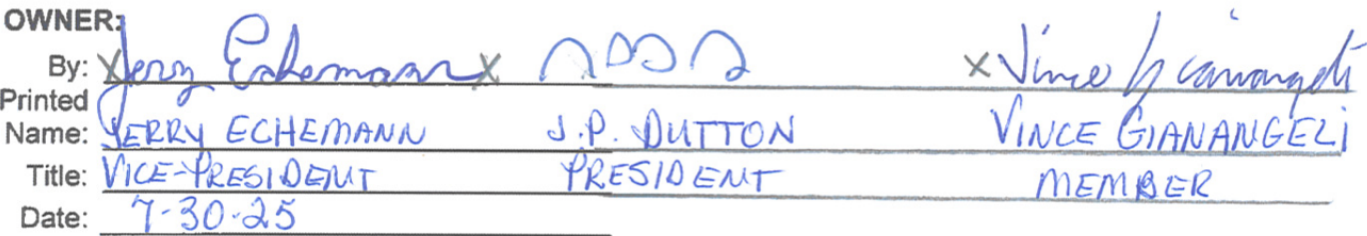 OWNER:
By: X Jerry Echemann X X Vince Gianangeli
Printed
Name: JERRY ECHEMANN J.P. DUTTON VINCE GIANANGELI
Title: VICE-PRESIDENT PRESIDENT MEMBER
Date: 7-30-25